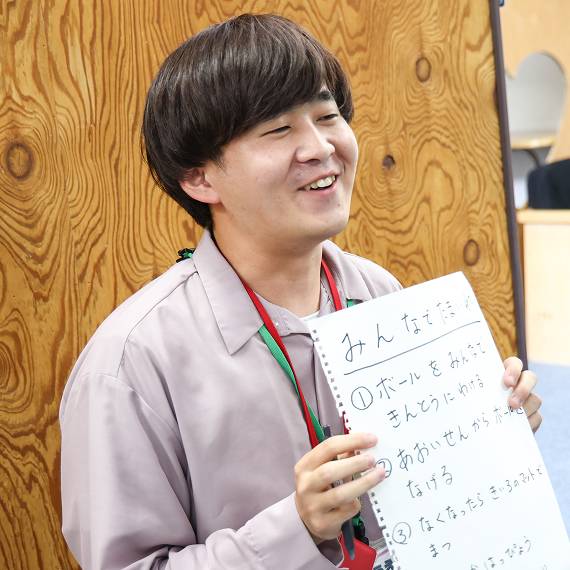 みんなで
① ボールをみんなで
きんとうにわける
② あおいせんからボール
なげる
③ なくなったらきいろのマットで
まつ
はっぴょう